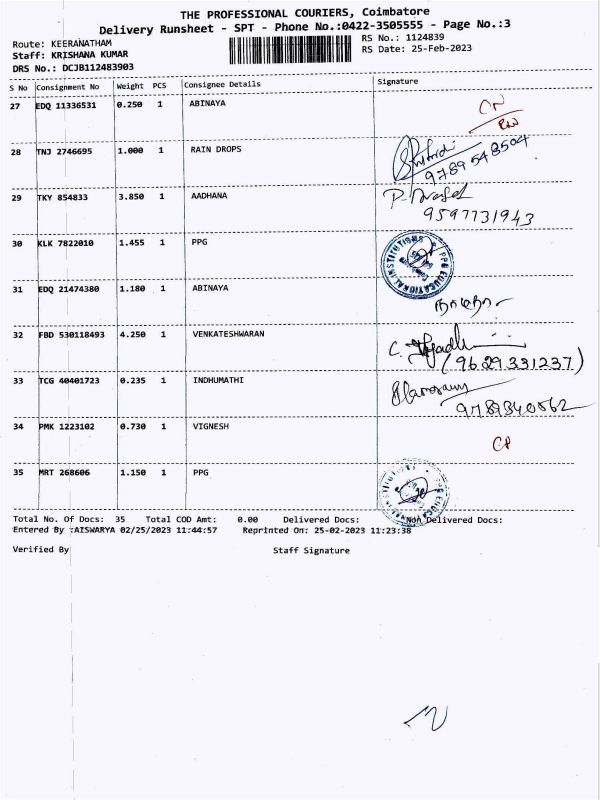 THE PROFESSIONAL COURIERS, Coimbatore
Delivery Runsheet - SPT - Phone No.:0422-3505555 - Page No.:3
Route: KEERANATHAM
RS No.: 1124839
Staff: KRISHANA KUMAR
RS Date: 25-Feb-2023
DRS No.: DCJB112483903
S No Consignment No Weight PCS Consignee Details Signature
27 EDQ 11336531 0.250 1 ABINAYA
28 TNJ 2746695 1.000 1 RAIN DROPS
9789548504
29 TKY 854833 3.850 1 AADHANA
9597731943
30 KLK 7822010 1.455 1 PPG
PPG EDUCATIONAL INSTITUTIONS
31 EDQ 21474380 1.180 1 ABINAYA
32 FBD 530118493 4.250 1 VENKATESHWARAN
(9629331237)
33 TCG 40401723 0.235 1 INDHUMATHI
9789340562
34 PMK 1223102 0.730 1 VIGNESH
35 MRT 268606 1.150 1 PPG
Total No. Of Docs: 35 Total COD Amt: 0.00 Delivered Docs: Non Delivered Docs:
Entered By :AISWARYA 02/25/2023 11:44:57 Reprinted On: 25-02-2023 11:23:38
Verified By Staff Signature